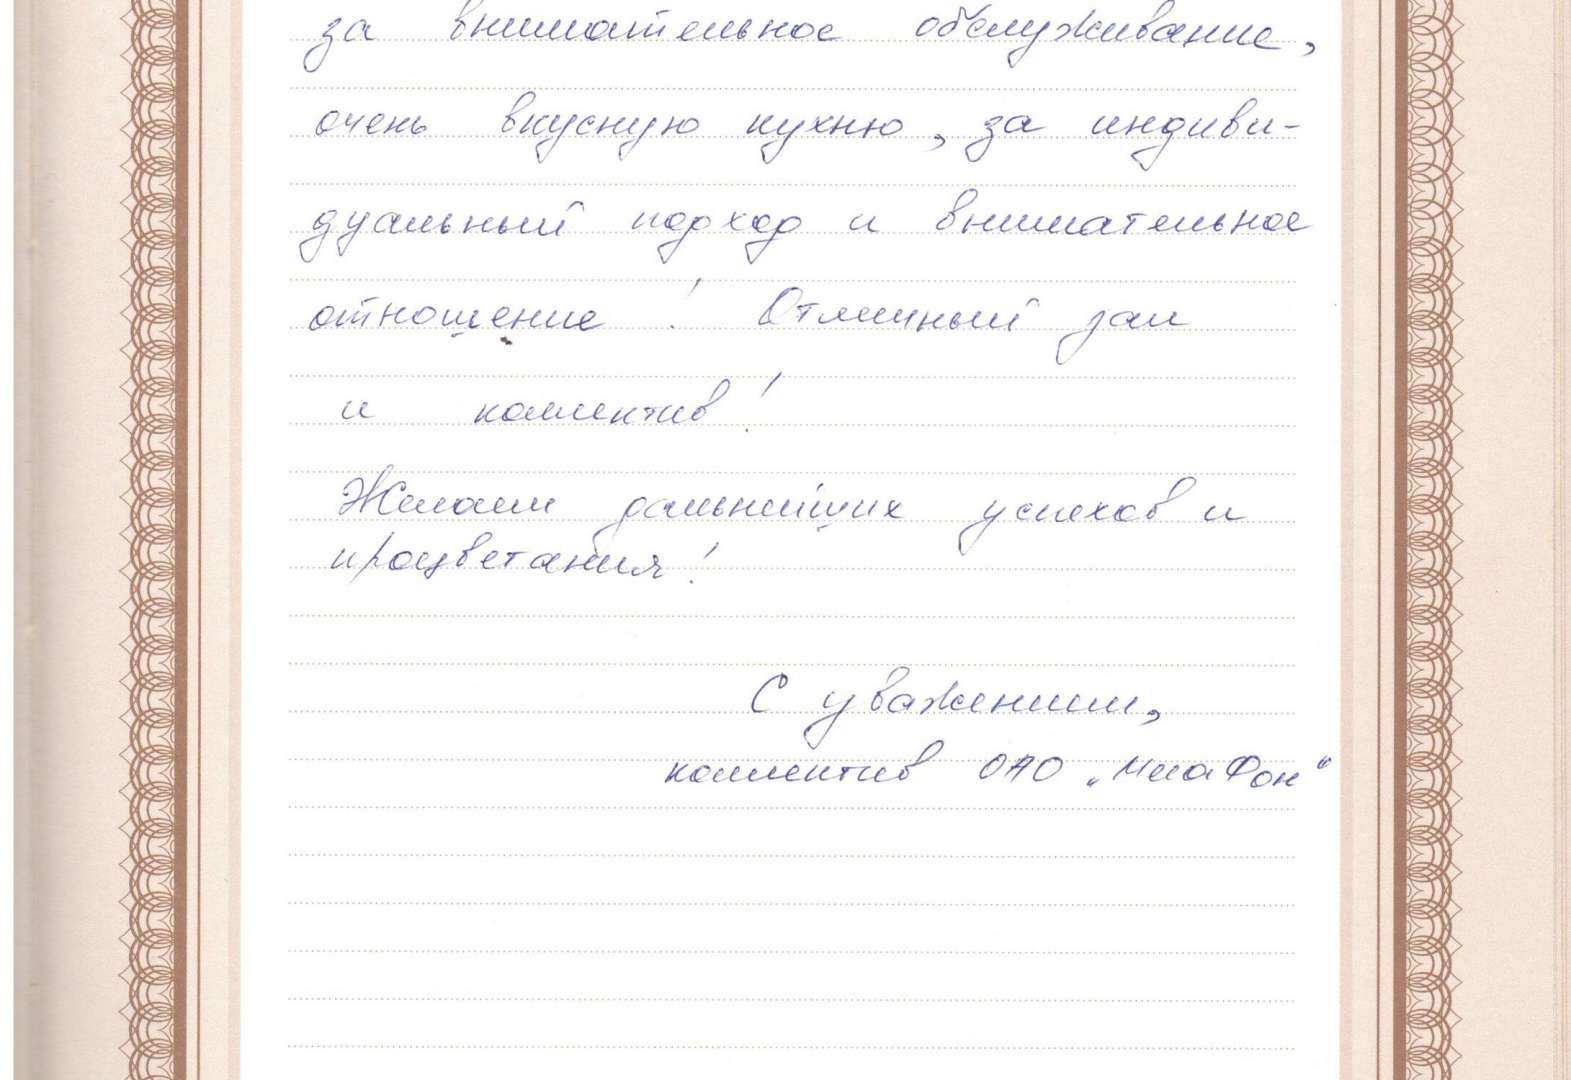 за внимательное обслуживание,
очень вкусную кухню, за индиви-
дуальный подход и внимательное
отношение! Отличный зал
и коллектив!
Желаем дальнейших успехов и
процветания!
С уважением,
коллектив ОАО „МегаФон“